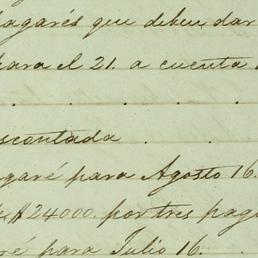 pagarés que deben dar
para el 21. a cuenta
. . . .
scontada . . .
garé para Agosto 16.
$24000. por tres pag
re para Julio 16. .